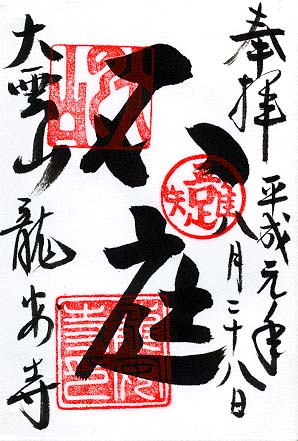 奉拝 平成元年
八月二十八日
石庭
大雲山 龍安寺